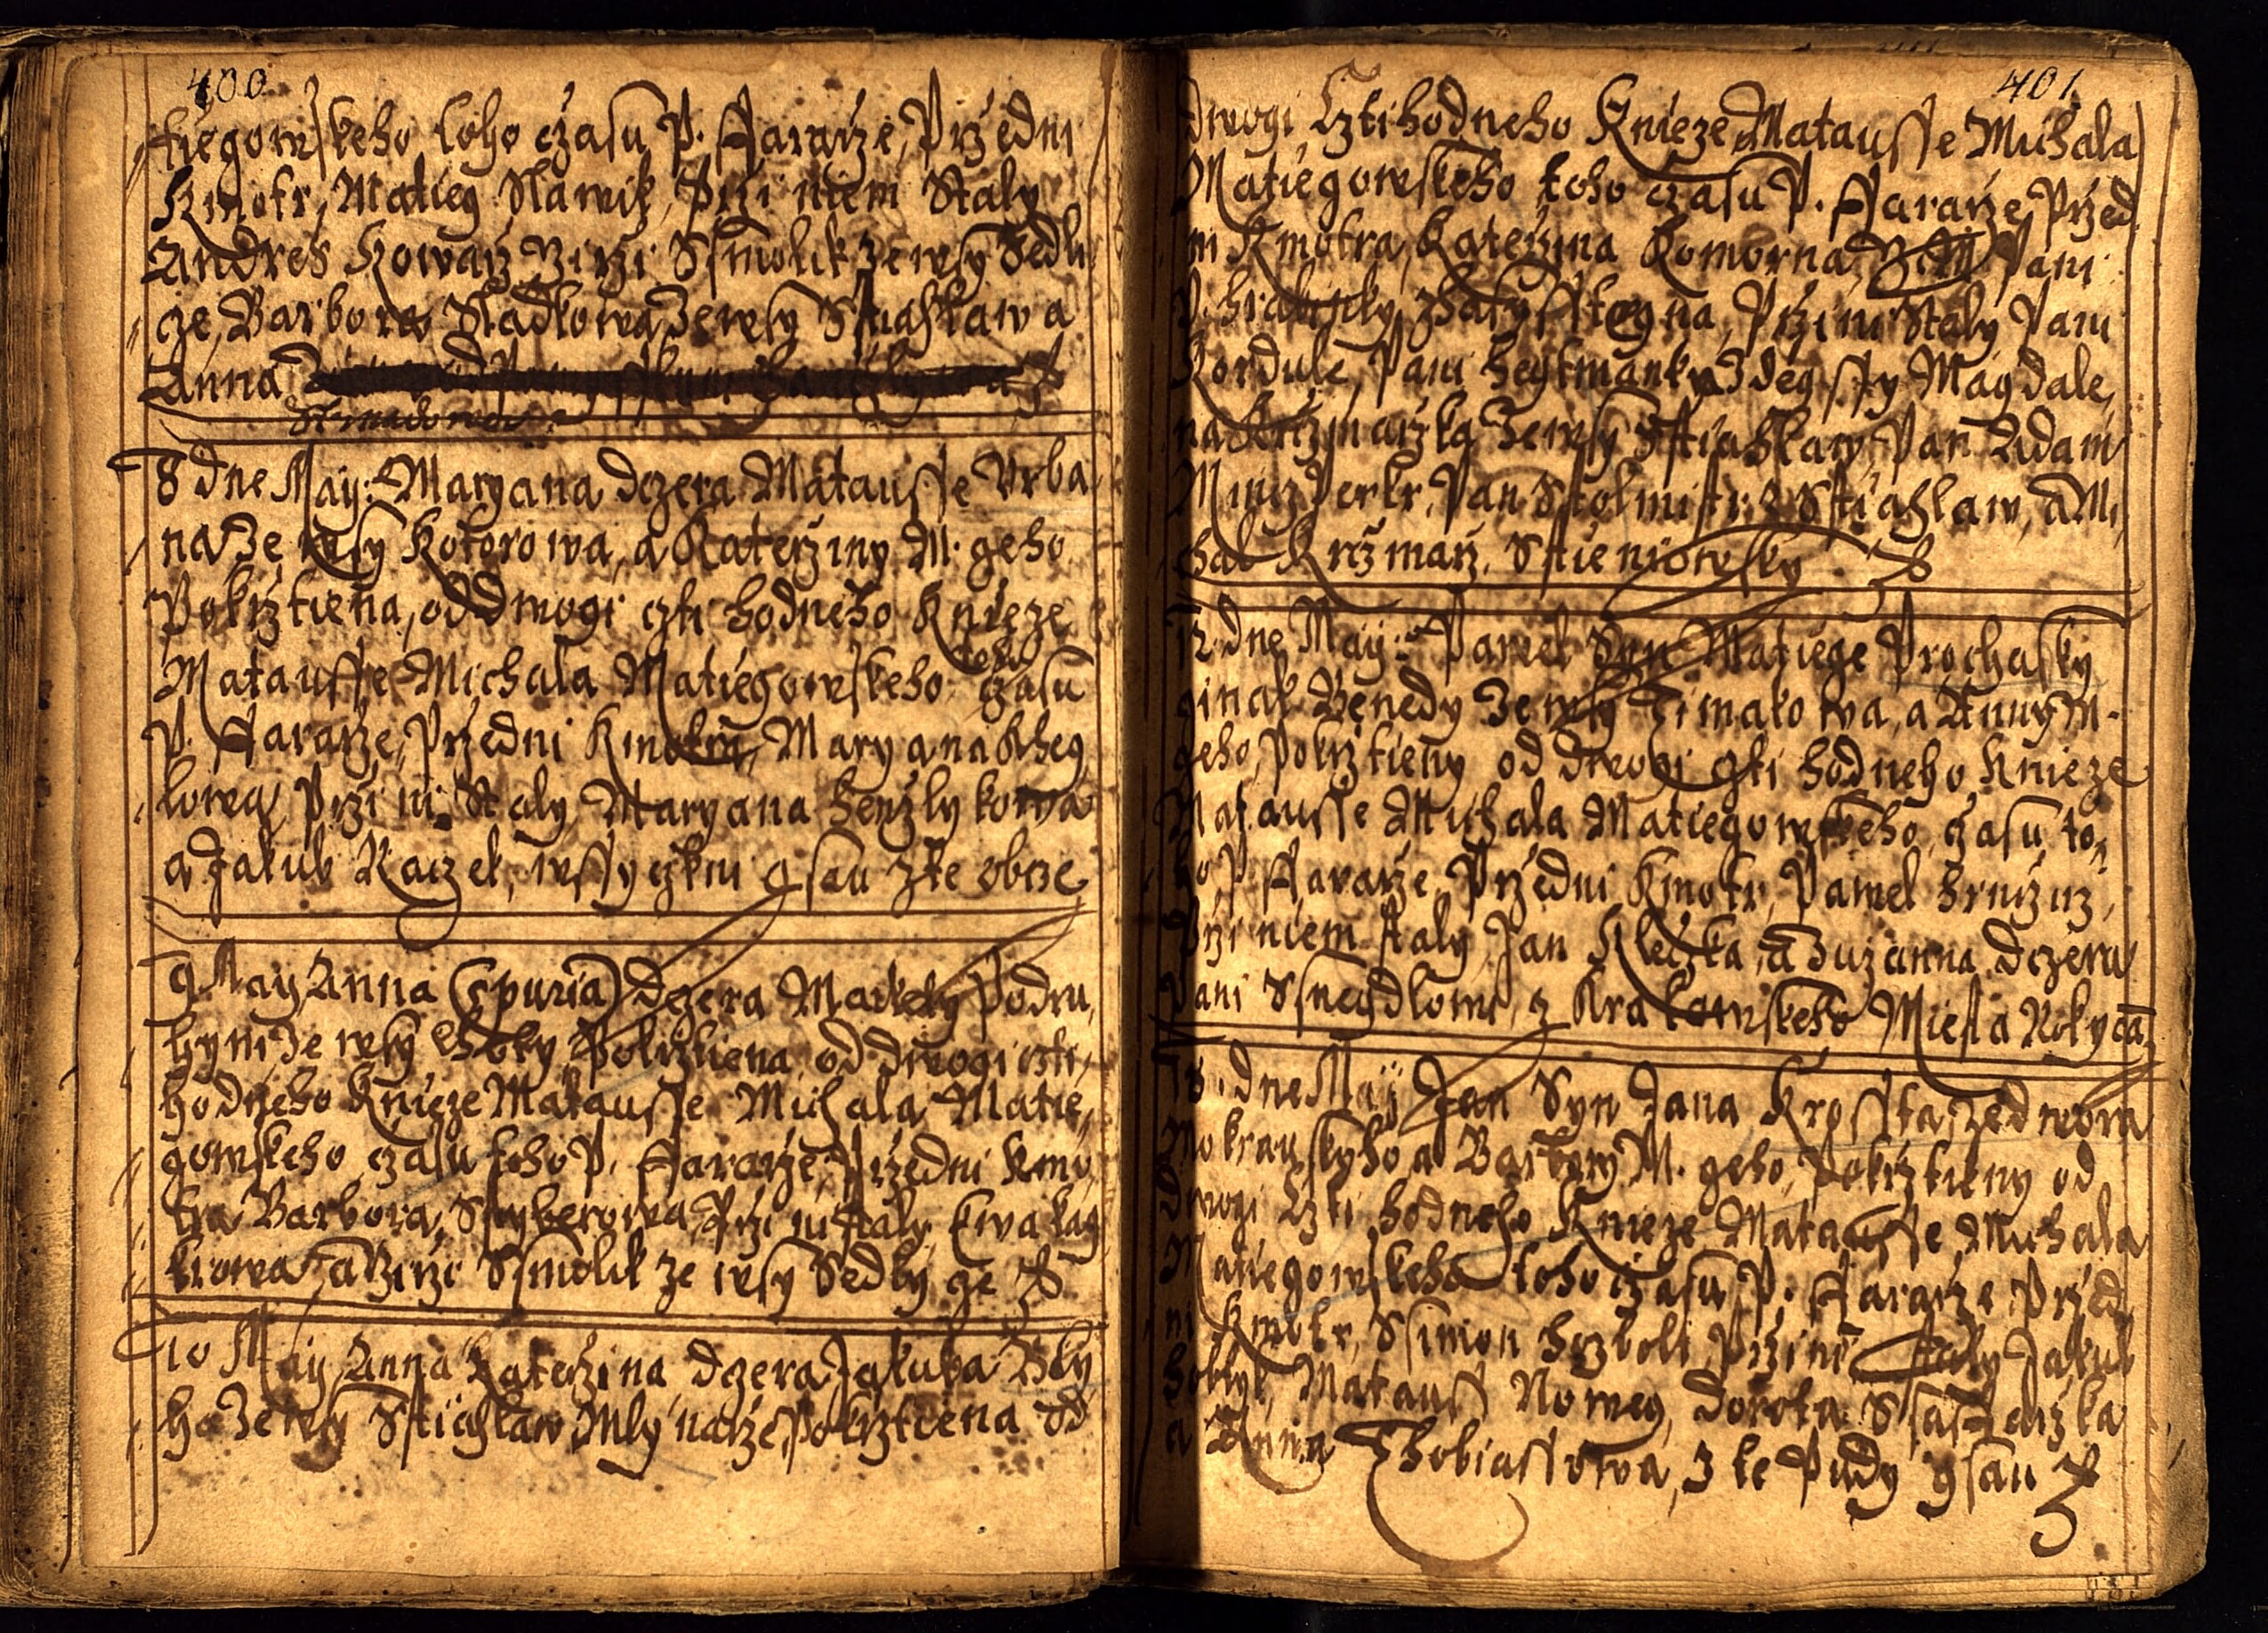 400
tiegowskeho toho czasu P. Fararze, Przedni
Kmotr, Matieg Slawik, Przi niem Staly
Andres Kowarz Birzi Ssmolik ze wsy Sedli
cze, Barbora Sladkowa Ze wsy Stiahlaw a
Anna
8 dne May: Maryana dczera Matausse Vrba
na Ze wsy Kotorowa, a Katerziny M. geho
Pokrztiena, od Dwogi czti hodneho Knieze
Matausse Michala Matiegowskeho toho czasu
P. Fararze, Przedni Kmotra, Maryana Kheg
lowa, Przi ni Staly Maryana henzlykowa
a Jakub Raczek, wssyczkni gsau z te obcze
9 May Anna (spuria) dczera Markety Podru,
hyni Ze wsy Pokrztiena od dwogi czti,
hodneho Knieze Matausse Michala Matie,
gowskeho czasu toho P. Fararze, Przedni Kmo,
tra Barbora, Przi ni staly, Ewa
a Birzi Ssmolik ze wsy Sedly ge
10 May Anna Katerzina dczera Jakuba Bily
ho Ze wsy Stiahlaw Mlynarze, Pokrztiena od
401
dwogi Czti hodneho Knieze Matausse Michala
Matiegowskeho toho czasu P. Fararze, Przed
ni Kmotra, Katerzina Komorna, Pani
Przi ni Staly Pani
Kordule, Pani heytmanka Zdegssy Magdale,
na Krczmarzka Ze wsy Stiahlaw, Pan Adam
Pan Stolmistr z Stiahlaw, a Mi,
chal Krczmarz Stieniowsky
12 dne May: Pawel Syn Matiege Prochasky
ginak Benedy Ze wsy Timakowa, a Anny M.
geho, Pokrztieny od dwogi czti hodneho Knieze
Matausse Michala Matiegowskeho, czasu to,
ho P. Fararze, Przedni Kmotr, Pawel hrnczirz,
Przi niem staly, Jan Kleczka, a Zuzanna dczera
Pani Ssneydlowi, z Kralowskeho Miesta Rokycan
13. dne May Jan Syn Jana Krossta, ze dwora
Mokrauskyho a Barbory M. geho, Pokrztieny od
Dwogi Czti hodneho Knieze Matausse Michala
Matiegowskeho toho czasu P. Fararze, Przed
ni Kmotr, Ssimon Przi niem staly Jakub
Matauss Nowey, Dorota
a Anna Thobiassowa, z te Pudy gsau